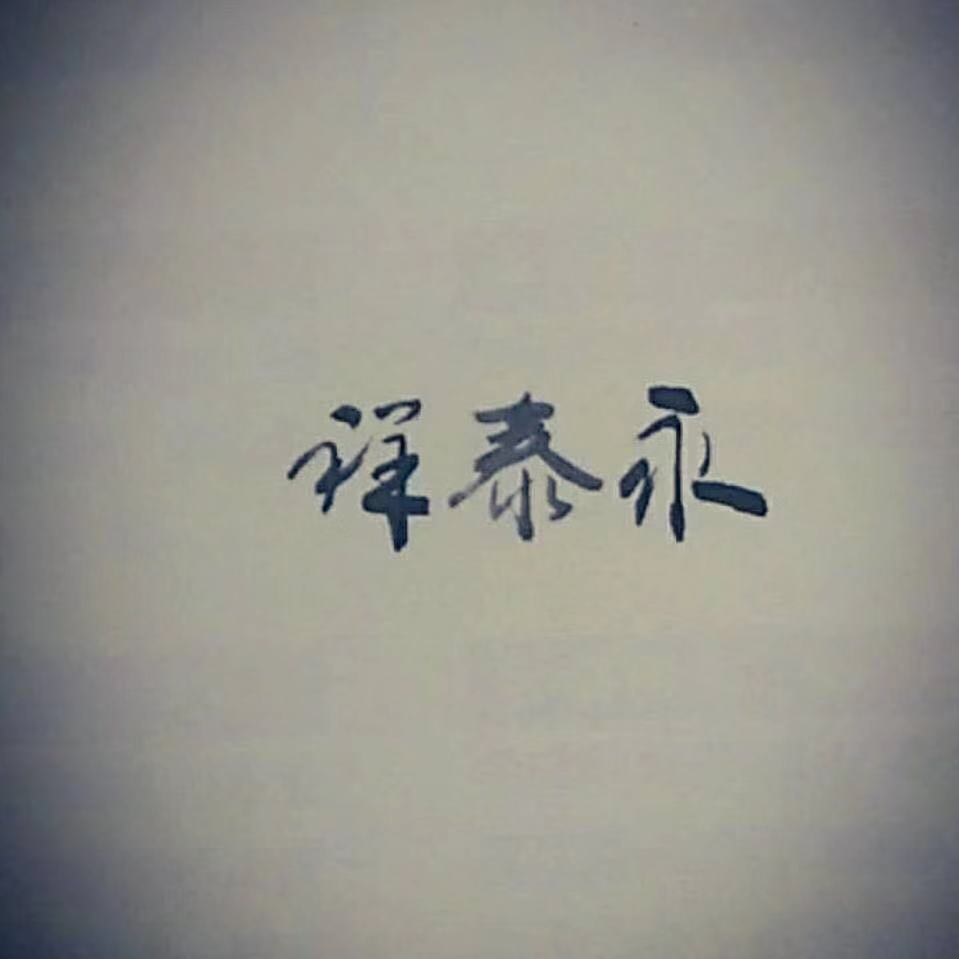 祥泰永